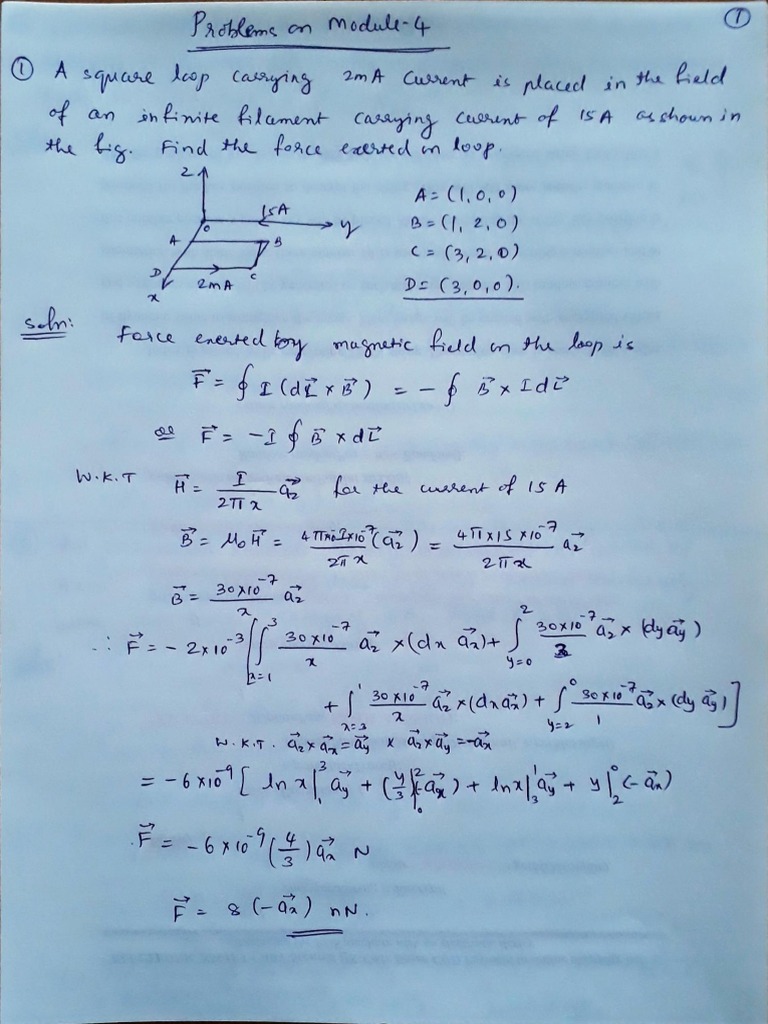 Problems on Module-4
1
① A square loop carrying 2mA current is placed in the field
of an infinite filament carrying current of 15A as shown in
the fig. Find the force exerted on loop.
Z
15A
O
y
A
B
D
C
2mA
x
A = (1,0,0)
B = (1, 2, 0)
C = (3, 2, 0)
D = (3, 0, 0).
Soln: Force exerted by magnetic field on the loop is
F⃗ = ∮ I (dL⃗ × B⃗) = - ∮ B⃗ × I dL⃗
or F⃗ = -I ∮ B⃗ × dL⃗
W.K.T H⃗ = I/2πx a⃗z for the current of 15 A
B⃗ = μ0 H⃗ = (a⃗z) = 4π×15×10^-7/2πx a⃗z
B⃗ = 30×10^-7/x a⃗z
∴ F⃗ = -2×10^-3 [ ∫x=1^3 30×10^-7/x a⃗z × (dx a⃗x) + ∫y=0^2 30×10^-7/3 a⃗z × (dy a⃗y)
+ ∫x=3^1 30×10^-7/x a⃗z × (dx a⃗x) + ∫y=2^0 30×10^-7/1 a⃗z × (dy a⃗y) ]
W.K.T. a⃗z × a⃗x = a⃗y & a⃗z × a⃗y = -a⃗x
= -6×10^-9 [ ln x|1^3 a⃗y + (y/3)|0^2 (-a⃗x) + ln x|3^1 a⃗y + y|2^0 (-a⃗x)
F⃗ = -6×10^-9 (4/3) a⃗x N
F⃗ = 8 (-a⃗x) nN.